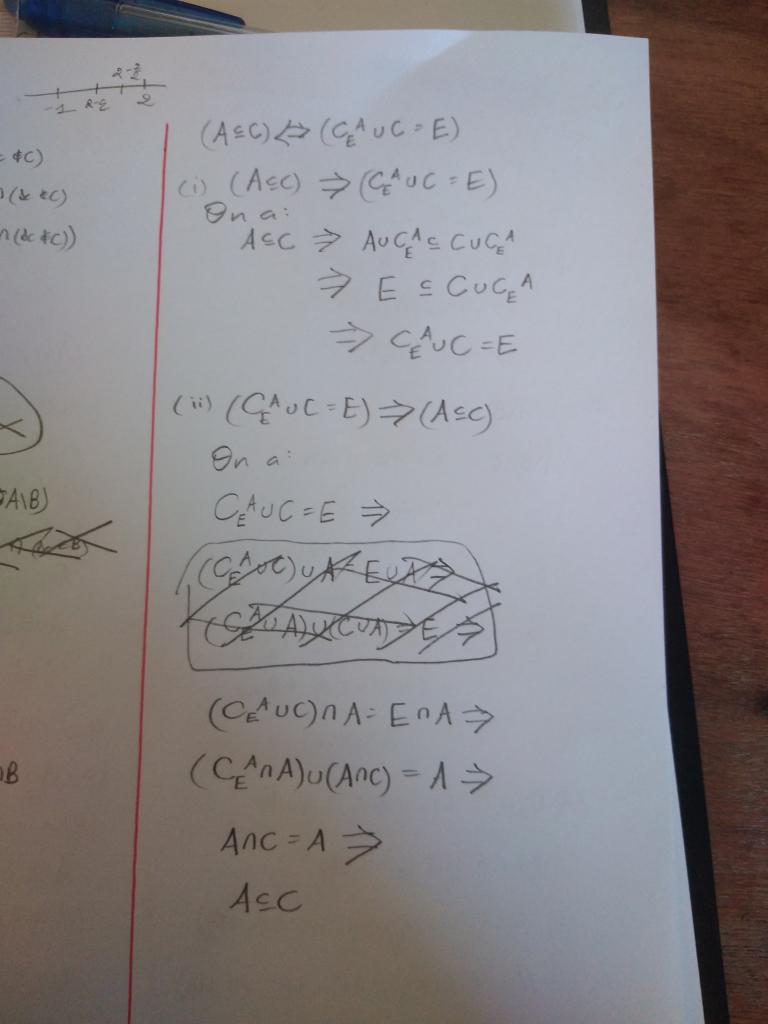 2-ε/2
-1 2-ε 2
(A⊆C) ⇔ (C_E^A ∪ C = E)
(i) (A⊆C) ⇒ (C_E^A ∪ C = E)
On a:
A⊆C ⇒ A∪C_E^A ⊆ C∪C_E^A
⇒ E ⊆ C∪C_E^A
⇒ C_E^A∪C = E
(ii) (C_E^A ∪ C = E) ⇒ (A⊆C)
On a:
C_E^A∪C = E ⇒
(C_E^A ∪ C)∪A = E∪A ⇒
(C_E^A ∪ A)∪(C∪A) = E ⇒
(C_E^A ∪ C)∩A = E∩A ⇒
(C_E^A∩A)∪(A∩C) = A ⇒
A∩C = A ⇒
A⊆C
A\B)
B